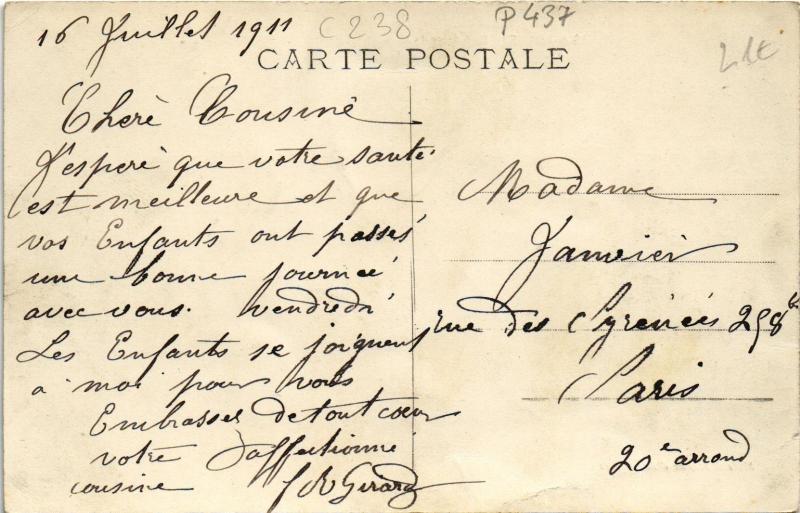 16 Juillet 1911
C238
P437
CARTE POSTALE
Cherè Cousinè
J'esperè que votre santé
est meilleure et que
vos Enfants ont passés
une bonne journeé
avec vous. vendredi
Les Enfants se joignent
a moi pour vous
Embrasser de tout cœur
votre affectionné
cousine Girard
Madame
Janvier
rue des Pyrénées 298 bis
Paris
20e arrond